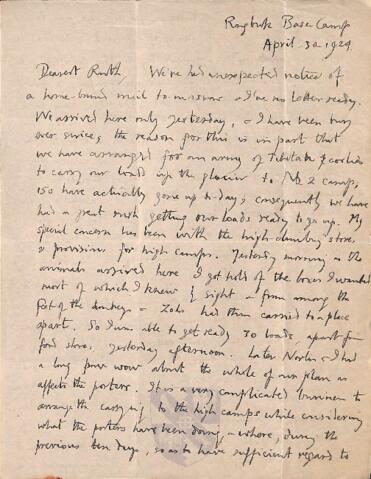 Rongbuk Base Camp
April 30 1924.
Dearest Ruth, We've had unexpected notice of
a home-bund mail to-morrow & I've no letter ready.
We arrived here only yesterday, & I have been busy
ever since; the reason for this is in part that
we have arranged for an army of Tibetan coolies
to carry our loads up the glacier to No 2 camp,
150 have actually gone up to-day; consequently we have
had a great rush getting our loads ready to go up. My
special concern has been with the high-climbing stores
& provisions for high camps. Yesterday morning as the
animals arrived here I got hold of the boxes I wanted
most of which I knew by sight & from among the
feet of the donkeys & Zohs had them carried to a place
apart. So I was able to get ready 30 loads, apart from
food stores, yesterday afternoon. Later Norton & I had
a long pow wow about the whole of our plan as
affects the porters. It is a very complicated business to
arrange the carrying to the high camps while considering
what the porters have been doing, & where, during the
previous ten days, so as to have sufficient regard to